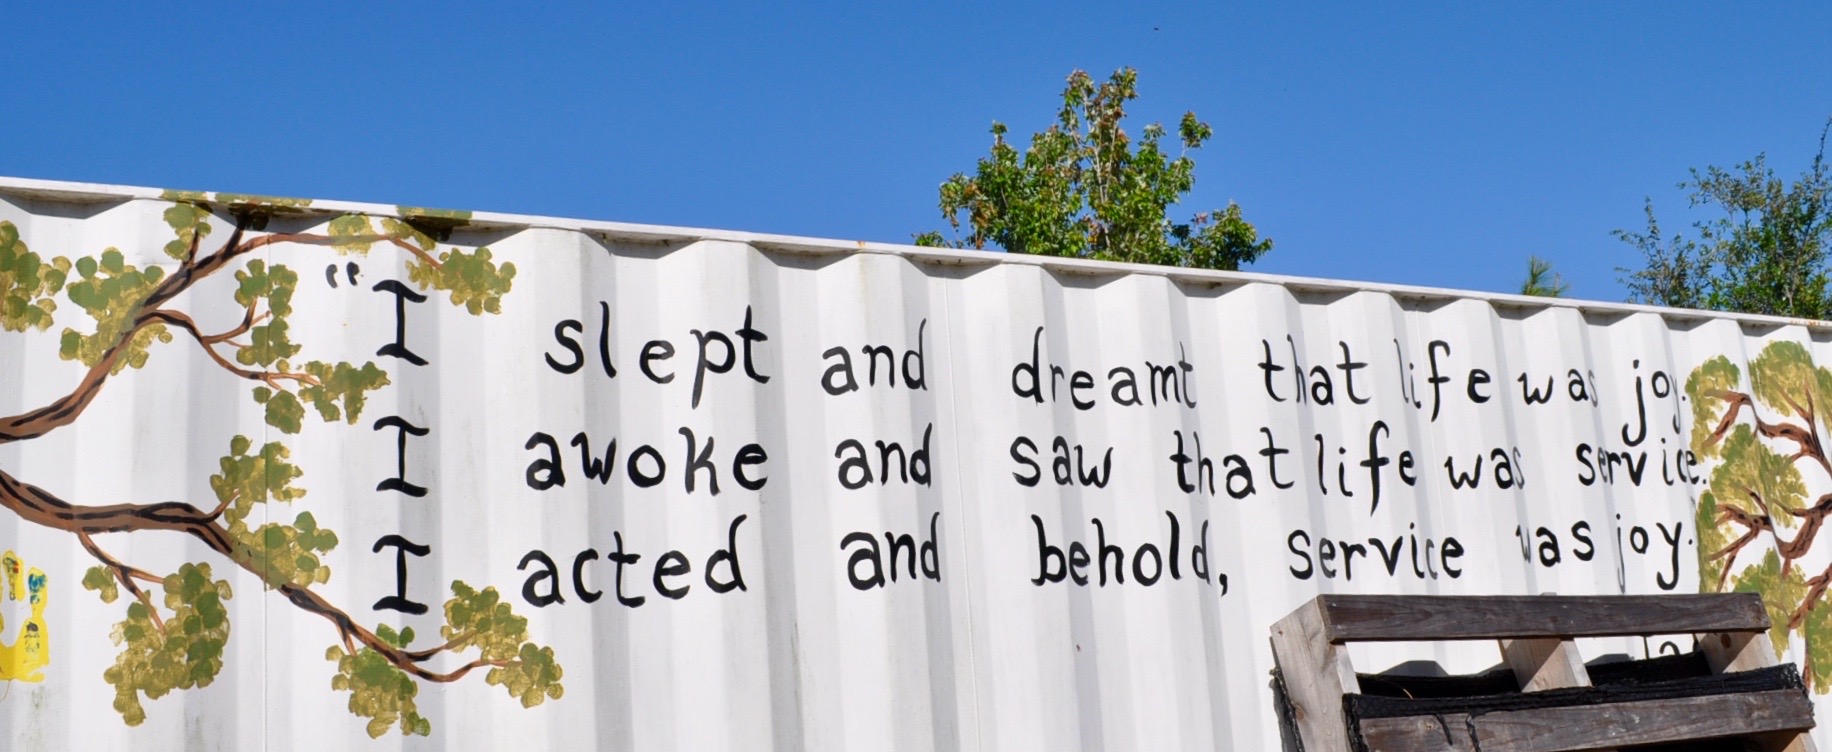 "I slept and dreamt that life was joy.
I awoke and saw that life was service.
I acted and behold, service was joy.